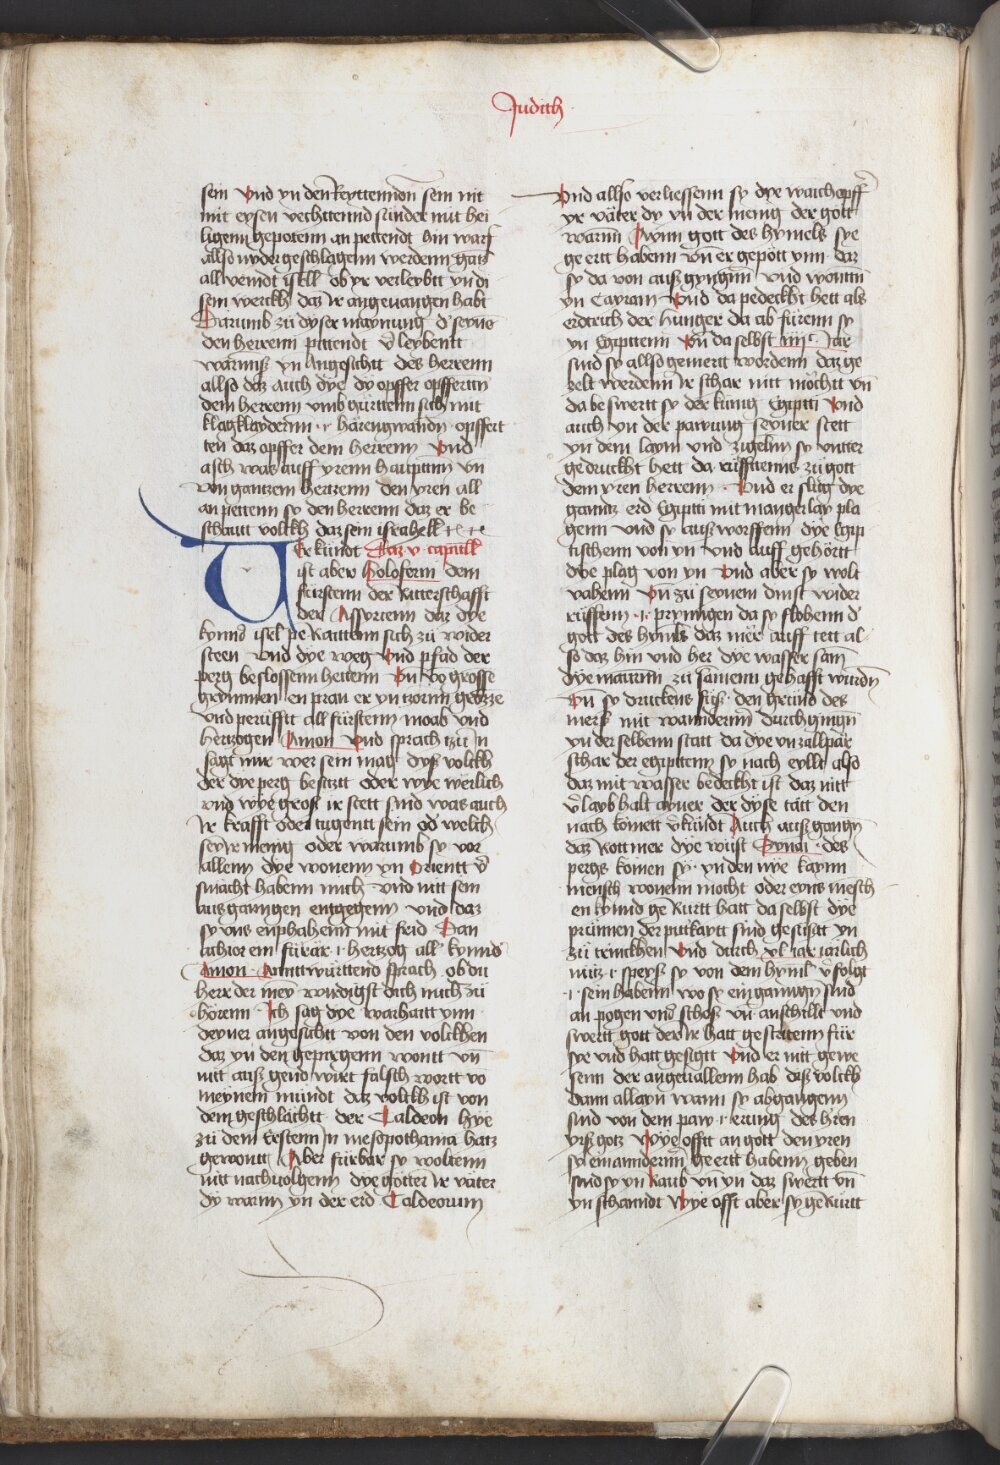 Judith
sein Vnd yn den Reyttennon sein nit
mit eysen vechttennd sunder mit hei
ligenn gepotenn an pettendt hin warf
allso nyder geschlagenn werdenn gatz
all veindt isrll ob yr verleybtt yn di
sem werckh daz Ir angeuangen habt
Darumb zu dyser maynung d' seyne
den herrenn pittendt v'leybentt
warnnß yn Angesichtt des herrenn
allso daz auch dye dy opffer opffertn
dem herrenn vmb gürttenn sich mit
klagklaydernn ·i· härengwandn opffert
ten daz opffer dem herrenn Vnd
asch was auff yrenn haupttnn vn
von gantzem hertzenn den yren all
an pettenn sy den herrenn daz er be
schautt volckh dar sein israhell etc
VErkündt Daz v capitill
ist aber holoferni dem
fürstenn der Ritterschafft
der Assyrienn daz dye
kynnd' isrl pe Raittenn sich zu wider
steen vnd dye weg Vnd pfad der
perg beslossenn hettenn Vn vo grosse
grymmen en pran er yn zornn gehze
vnd perüfftt all fürstenn moab vnd
hertzogen Amon Vnd sprach tzu In
sagt mir wer sein mag dyß volckh
der dye perg besitztt oder wye werlich
vnd wye groß ir stett sind was auch
Ir krafft oder tugentt sein od' welch
sey Ir menig oder warumb sy vor
allenn dye wonenn yn Orientt v'
smächt habenn mich vnd nitt sein
ausganngen entgegenn vnd daz
sy vns enphahenn mit frid Dan
achior ein fürär ·i· hertzog all' kynnd'
Amon Anntwürttend sprach ob du
herr der mey wirdigst dich mich zu
hörenn Ich sag dye warhaitt ynn
deyner angesichtt von den volckhen
daz yn den gepirgenn wontt vn
nitt auß gend wirt falsch wortt vo
meynem mundt daz volckh ist von
dem geschlächtt der Caldeon hye
zu dem Erstenn In mesopothamia hatz
gewontt Aber fürbar sy woltenn
nitt nachuolgenn dye götter Ir väter
dy warnn yn der erd Caldeorum
Vnd allso verliessenn sy dye waichopff
yr väter dy yn der menig der gött
warnn Ainn gott des hymels sye
ge ertt habenn vn er gepött ynn daz
sy da von auß gyngnn vnd wontnn
yn Carram Vnd da pedeckht hett als
erdtrich der hunger da ab fürenn sy
yn Egipttenn Vn da selbst iiijc Iar
sind sy allso gemertt wordenn daz ge
zelt werdenn Ir schar nitt möchtt vn
da beswertt sy der künig Egiptti Vnd
auch yn der pawung seyner stett
yn dem laym vnd zigelnn sy vntter
gedruckht hett da rüfftenns zu gott
dem yren herrenn Vnd er slug dye
ganntz erd Egiptti mit mangerlay pla
genn vnd sy auß worffenn dye Egip
tischenn von yn vnd auff gehörtt
dye plag von yn Vnd aber sy wolt
vahenn Vn zu seynem dinst wider
rüffenn ·i· prynngen da sy flohenn d'
gott des hymels daz mer auff tett al
so daz hin vnd her dye wasser sam
dye maurnn zu samenn gehafft wurdn
Vn sy druckens fuß den grund des
mers mit wannderrnn durchgingn
yn der selbenn statt da dye vnzallpär
schar der egipttenn sy nach eyllt also
daz mit wasser bedeckht ist daz nitt
v'layb halt ayner der dyse tätt den
nach komett v'kündt Auch auß gangn
daz Rott mer dye wüst Synai des
pergs komen sy yn den nye kaynn
mensch wonenn mocht oder eyns mesch
en kynnd ge Rurtt hatt da selbst dye
prunnen der puttkaytt sind gesüsstt yn
zu trinckhen Vnd durch xl iar iärlich
nütz ·i· speyß sy von dem hyml v'folgt
·i· sein habenn wo sy ein ganngn sind
an pogen vnd schoß vn anschillt vnd
swertt gott der Ir hatt gestrittenn für
sye vnd hatt gesigtt Vnd er nitt gewe
senn der angeuallenn hab diß volckh
dann allayn wann sy abgangenn
sind von dem paw ·i· erung des hren
yrß gotz Wye offtt an gott den yren
sy ein annderrnn geertt habenn geben
sind sy yn Raub vn yn daz swertt vn
yn schanndt Wye offt aber sy geRurtt